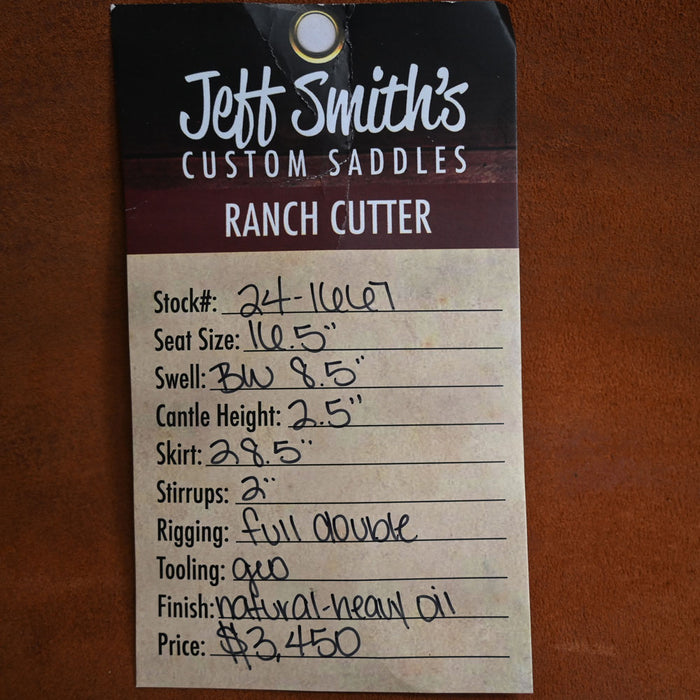 Jeff Smith's
CUSTOM SADDLES
RANCH CUTTER
Stock#: 24-1667
Seat Size: 16.5"
Swell: BW 8.5"
Cantle Height: 2.5"
Skirt: 28.5"
Stirrups: 2"
Rigging: full double
Tooling: geo
Finish: natural-heavy oil
Price: $3,450